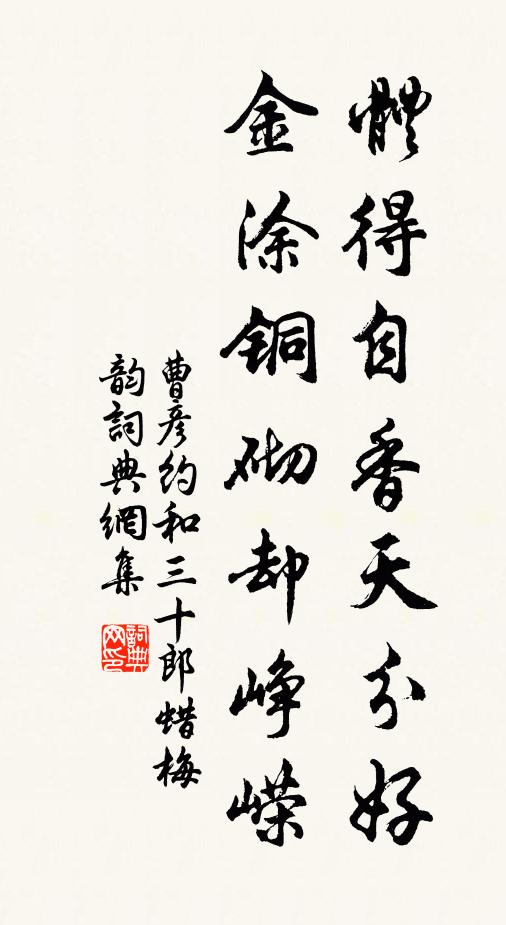 體得自香天分好
金涂銅砌却峥嵘
曹彥約和三十郎蜡梅
韵詞典網集
詞典網印